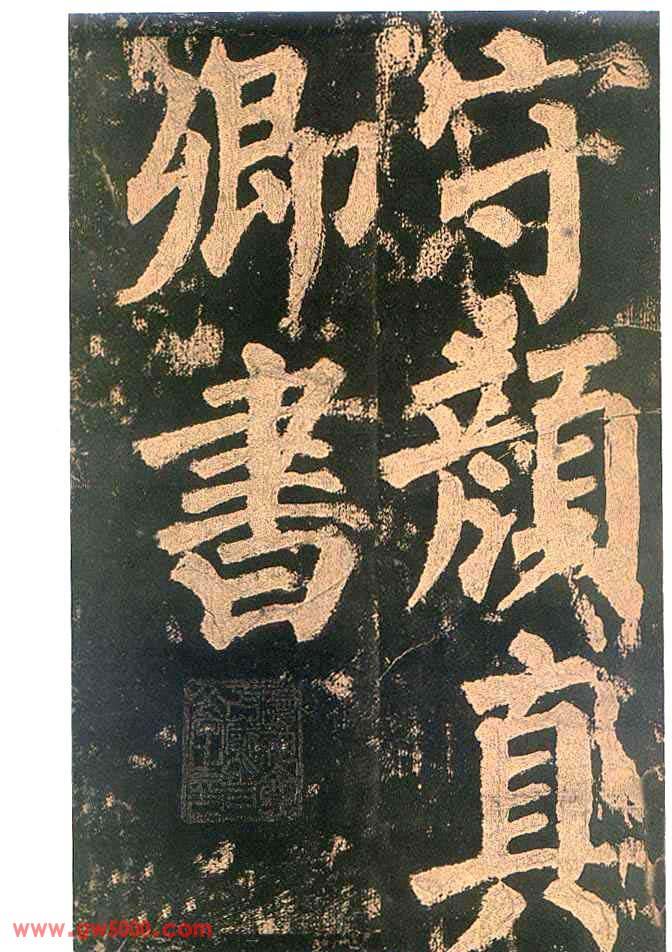 守顏真
卿書
www.gw5000.com